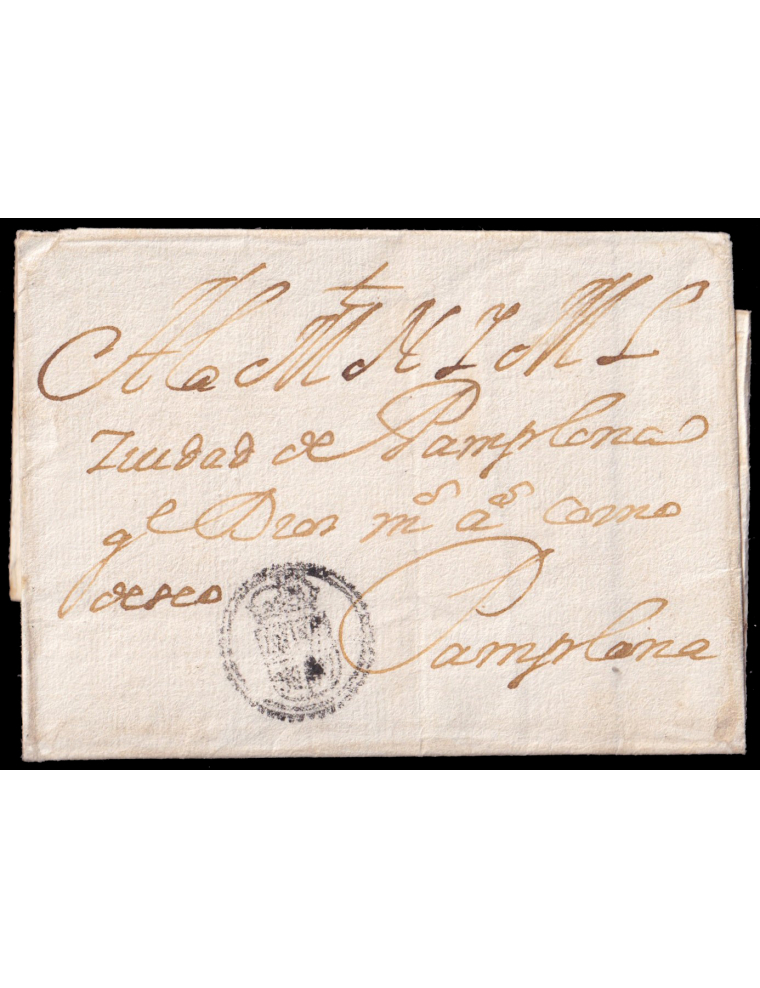 A la M N Y M L
Ziudad de Pamplona
ge Dios ms as como
deseo
Pamplona